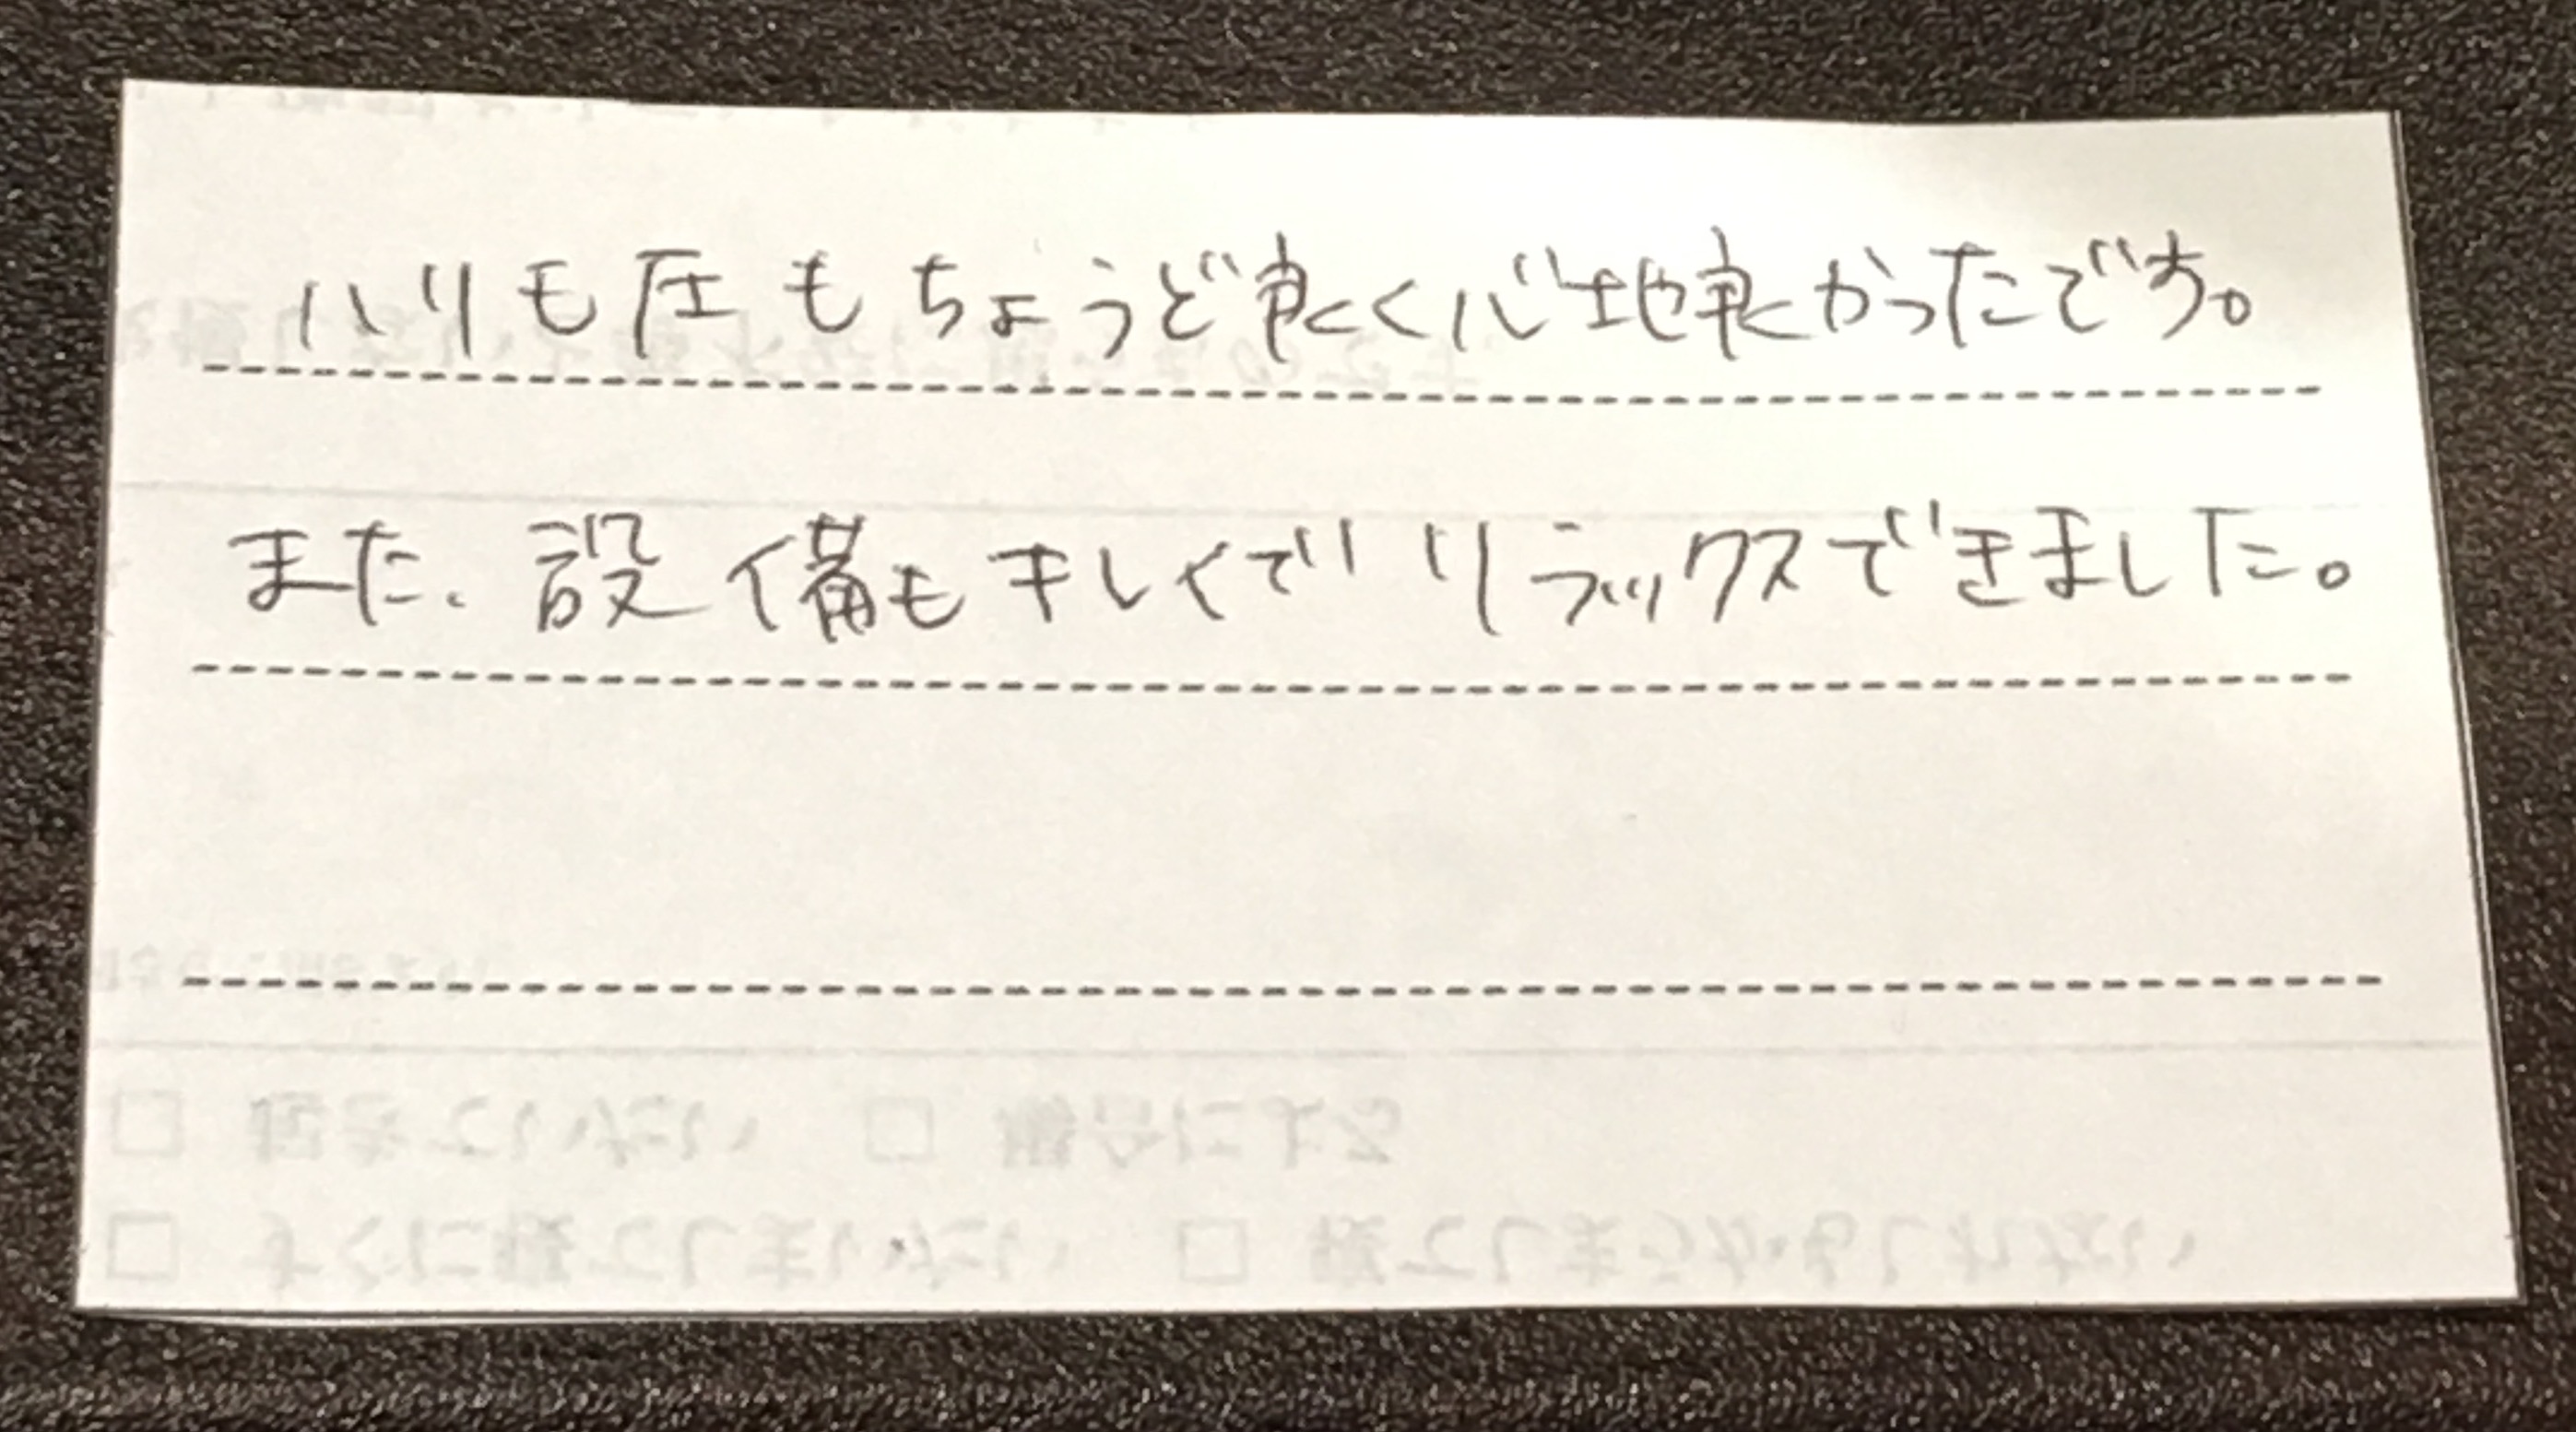 ハリも圧もちょうど良く心地良かったです。
また、設備もキレイでリラックスできました。